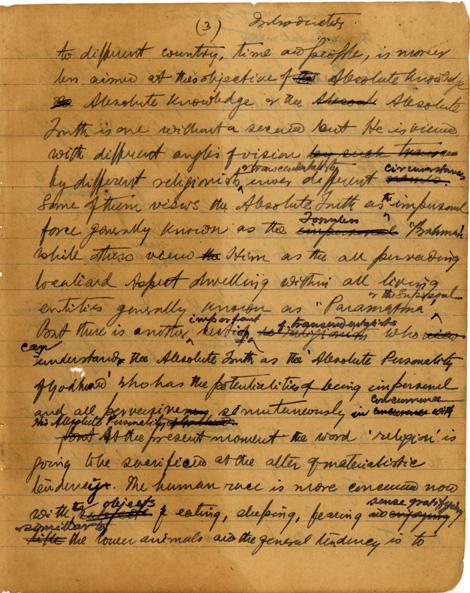 (3) Introduction
to different country, time and people, is more or
less aimed at this objective of the Absolute Knowledge
Absolute Knowledge or the Absolute Absolute
Truth is one without a second but He is viewed
with different angles of vision by such
by different religionists or transcendentalists under different circumstances
Some of them views the Absolute Truth as the impersonal
force generally known as the formless impersonal "Brahman"
while others view Him as the all pervading
localised Aspect dwelling within all living
entities generally known as "Paramatma"
But there is another important section of transcendentalists who
can understands the Absolute Truth as the 'Absolute Personality
of Godhead' who has the potentialities of being impersonal
and all pervasiveness simultaneously in concurrence with
His Absolute Personality
At the present moment the word 'religion' is
going to be sacrificed at the alter of materialistic
tendency. The human race is more concerned now
with the objects subjects of eating, sleeping, fearing and enjoying sense gratifying
similar to the lower animals and the general tendency is to